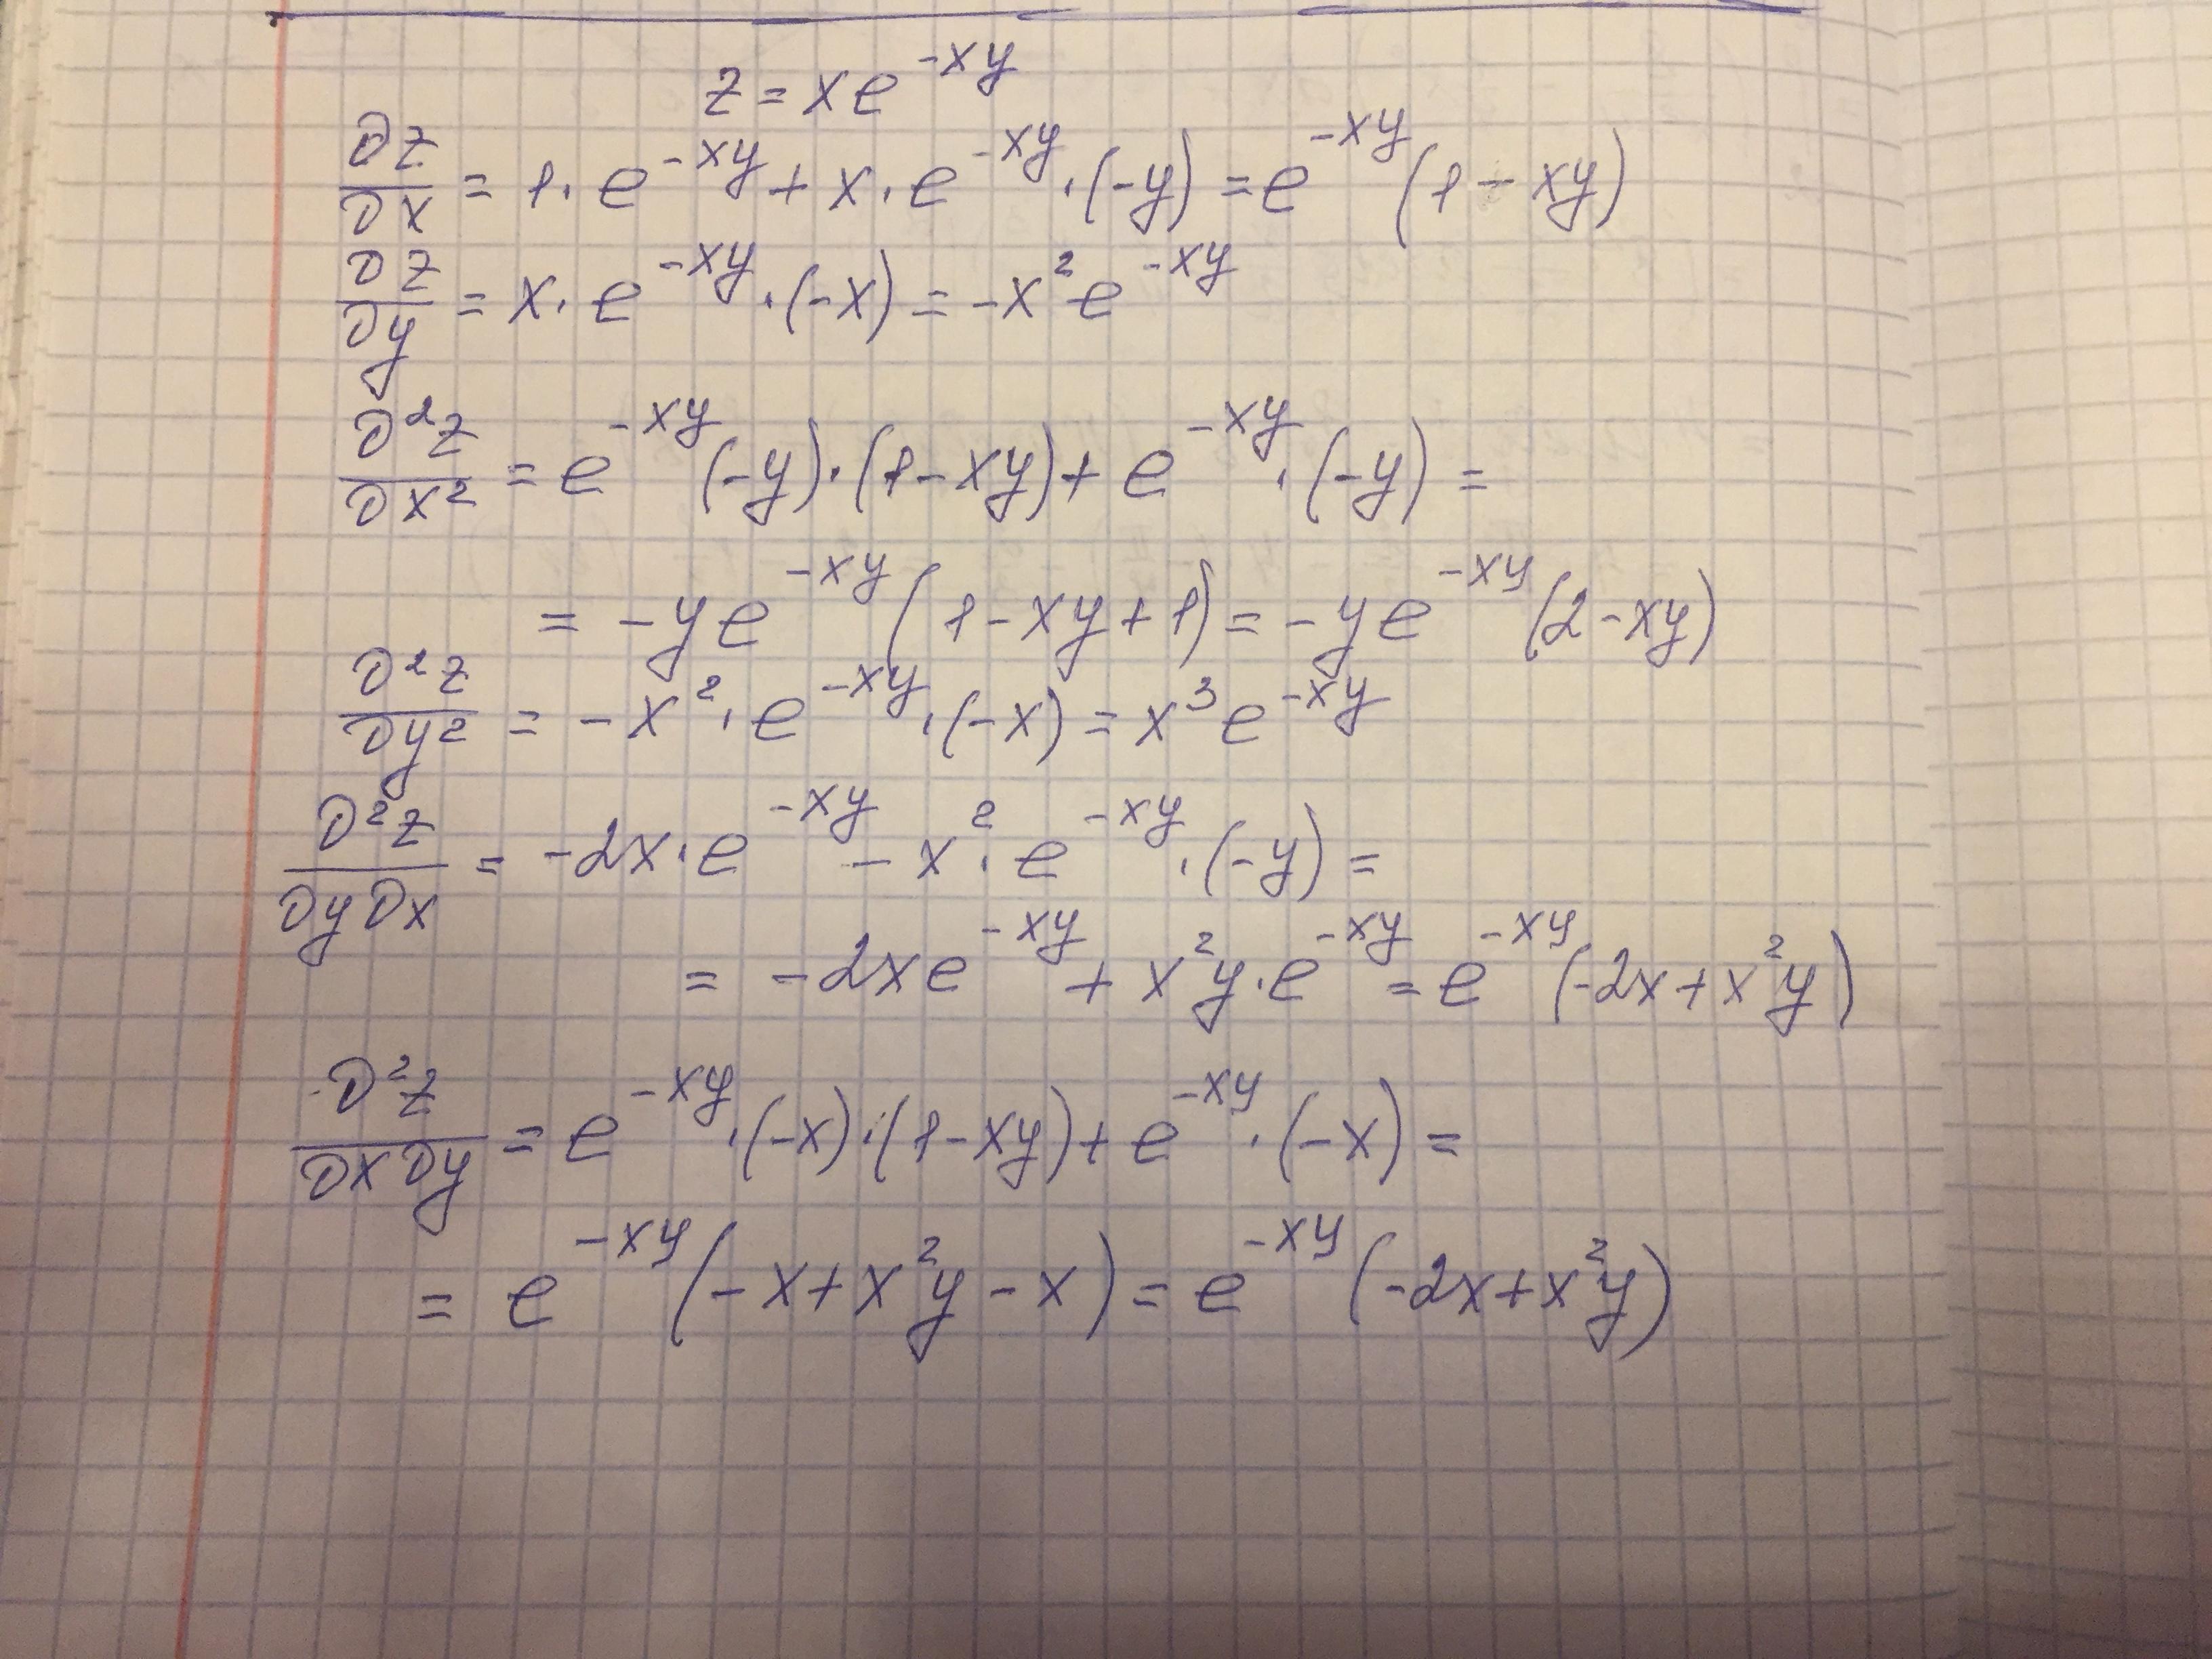 z = xe^{-xy}
∂z/∂x = 1·e^{-xy} + x·e^{-xy}·(-y) = e^{-xy}(1 - xy)
∂z/∂y = x·e^{-xy}·(-x) = -x²e^{-xy}
∂²z/∂x² = e^{-xy}(-y)·(1-xy) + e^{-xy}·(-y) =
= -ye^{-xy}(1-xy+1) = -ye^{-xy}(2-xy)
∂²z/∂y² = -x²·e^{-xy}·(-x) = x³e^{-xy}
∂²z/∂y∂x = -2x·e^{-xy} - x²·e^{-xy}·(-y) =
= -2xe^{-xy} + x²y·e^{-xy} = e^{-xy}(-2x+x²y)
∂²z/∂x∂y = e^{-xy}·(-x)·(1-xy) + e^{-xy}·(-x) =
= e^{-xy}(-x+x²y-x) = e^{-xy}(-2x+x²y)